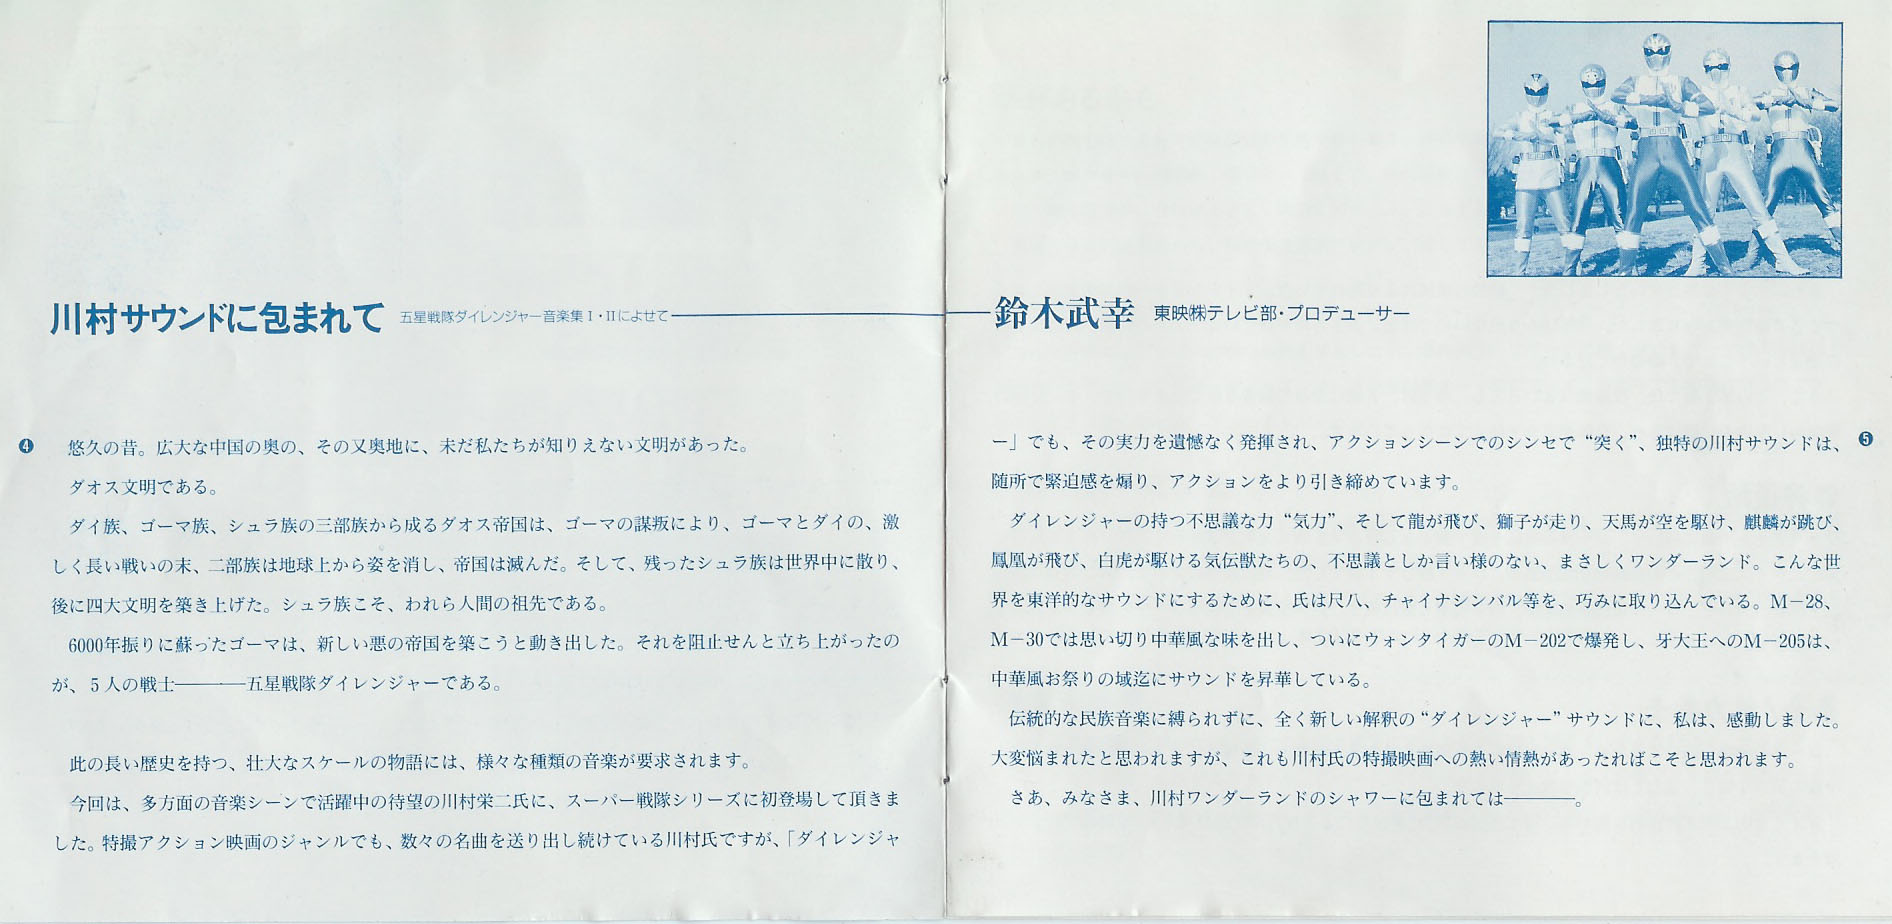 川村サウンドに包まれて 五星戦隊ダイレンジャー音楽集Ⅰ・Ⅱによせて
❹
悠久の昔。広大な中国の奥の、その又奥地に、未だ私たちが知りえない文明があった。
ダオス文明である。
ダイ族、ゴーマ族、シュラ族の三部族から成るダオス帝国は、ゴーマの謀叛により、ゴーマとダイの、激
しく長い戦いの末、二部族は地球上から姿を消し、帝国は滅んだ。そして、残ったシュラ族は世界中に散り、
後に四大文明を築き上げた。シュラ族こそ、われら人間の祖先である。
6000年振りに蘇ったゴーマは、新しい悪の帝国を築こうと動き出した。それを阻止せんと立ち上がったの
が、5人の戦士────五星戦隊ダイレンジャーである。
此の長い歴史を持つ、壮大なスケールの物語には、様々な種類の音楽が要求されます。
今回は、多方面の音楽シーンで活躍中の待望の川村栄二氏に、スーパー戦隊シリーズに初登場して頂きま
した。特撮アクション映画のジャンルでも、数々の名曲を送り出し続けている川村氏ですが、「ダイレンジャ
鈴木武幸 東映㈱テレビ部・プロデューサー
ー」でも、その実力を遺憾なく発揮され、アクションシーンでのシンセで“突く”、独特の川村サウンドは、
❺
随所で緊迫感を煽り、アクションをより引き締めています。
ダイレンジャーの持つ不思議な力“気力”、そして龍が飛び、獅子が走り、天馬が空を駆け、麒麟が跳び、
鳳凰が飛び、白虎が駆ける気伝獣たちの、不思議としか言い様のない、まさしくワンダーランド。こんな世
界を東洋的なサウンドにするために、氏は尺八、チャイナシンバル等を、巧みに取り込んでいる。M－28、
M－30では思い切り中華風な味を出し、ついにウォンタイガーのM－202で爆発し、牙大王へのM－205は、
中華風お祭りの域迄にサウンドを昇華している。
伝統的な民族音楽に縛られずに、全く新しい解釈の“ダイレンジャー”サウンドに、私は、感動しました。
大変悩まれたと思われますが、これも川村氏の特撮映画への熱い情熱があったればこそと思われます。
さあ、みなさま、川村ワンダーランドのシャワーに包まれては────。